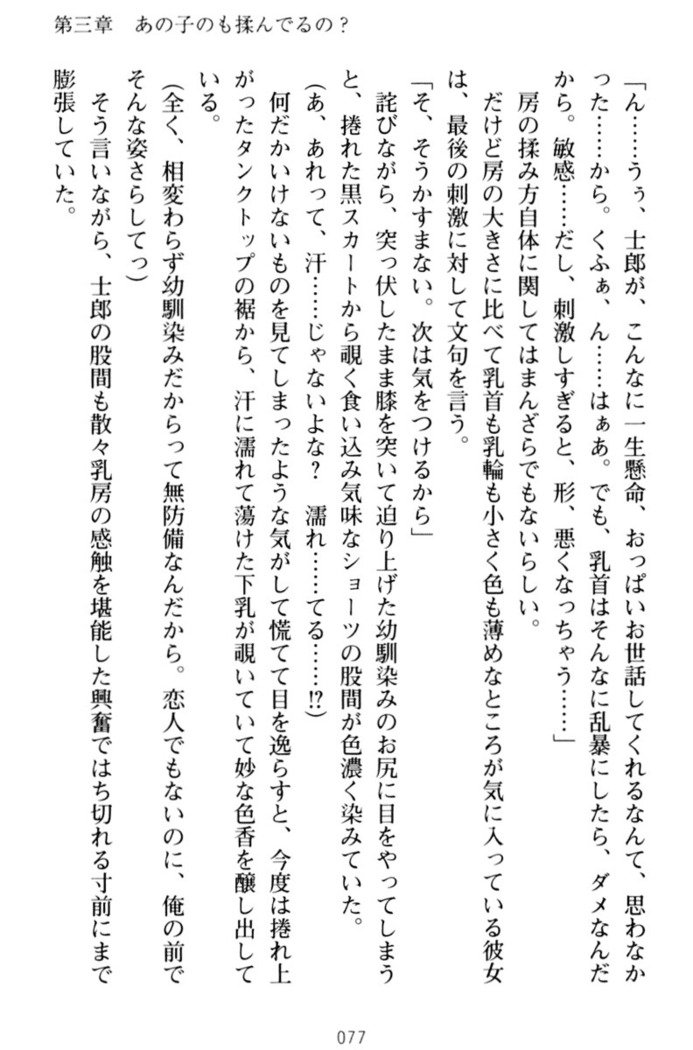 第三章　あの子のも揉んでるの？
「ん……うぅ、士郎が、こんなに一生懸命、おっぱいお世話してくれるなんて、思わなか
った……から。くふぁ、ん……はぁあ。でも、乳首はそんなに乱暴にしたら、ダメなんだ
から。敏感……だし、刺激しすぎると、形、悪くなっちゃう……」
房の揉み方自体に関してはまんざらでもないらしい。
だけど房の大きさに比べて乳首も乳輪も小さく色も薄めなところが気に入っている彼女
は、最後の刺激に対して文句を言う。
「そ、そうかすまない。次は気をつけるから」
詫びながら、突っ伏したまま膝を突いて迫り上げた幼馴染みのお尻に目をやってしまう
と、捲れた黒スカートから覗く食い込み気味なショーツの股間が色濃く染みていた。
（あ、あれって、汗……じゃないよな？　濡れ……てる……!?）
何だかいけないものを見てしまったような気がして慌てて目を逸らすと、今度は捲れ上
がったタンクトップの裾から、汗に濡れて蕩けた下乳が覗いていて妙な色香を醸し出して
いる。
（全く、相変わらず幼馴染みだからって無防備なんだから。恋人でもないのに、俺の前で
そんな姿さらしてっ）
そう言いながら、士郎の股間も散々乳房の感触を堪能した興奮ではち切れる寸前にまで
膨張していた。
077